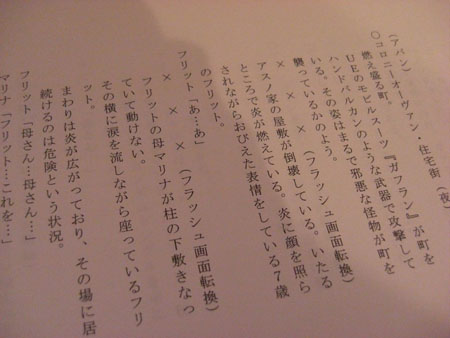 (アバン)
○コロニーオーヴァン・住宅街(夜)
燃え盛る町。
UEのモビルスーツ『ガフラン』が町を
ハンドバルカンのような武器で攻撃して
いる。その姿はまるで邪悪な怪物が町を
襲っているかのよう。
× × × (フラッシュ画面転換)
アスノ家の屋敷が倒壊している。いたる
ところで炎が燃えている。炎に顔を照ら
されながらおびえた表情をしている7歳
のフリット。
フリット「あ…あ」
× × × (フラッシュ画面転換)
フリットの母マリナが柱の下敷きなっ
ていて動けない。
その横に涙を流しながら座っているフリ
ット。
まわりは炎が広がっており、その場に居
続けるのは危険という状況。
フリット「母さん…母さん…」
マリナ「フリット…これを…」